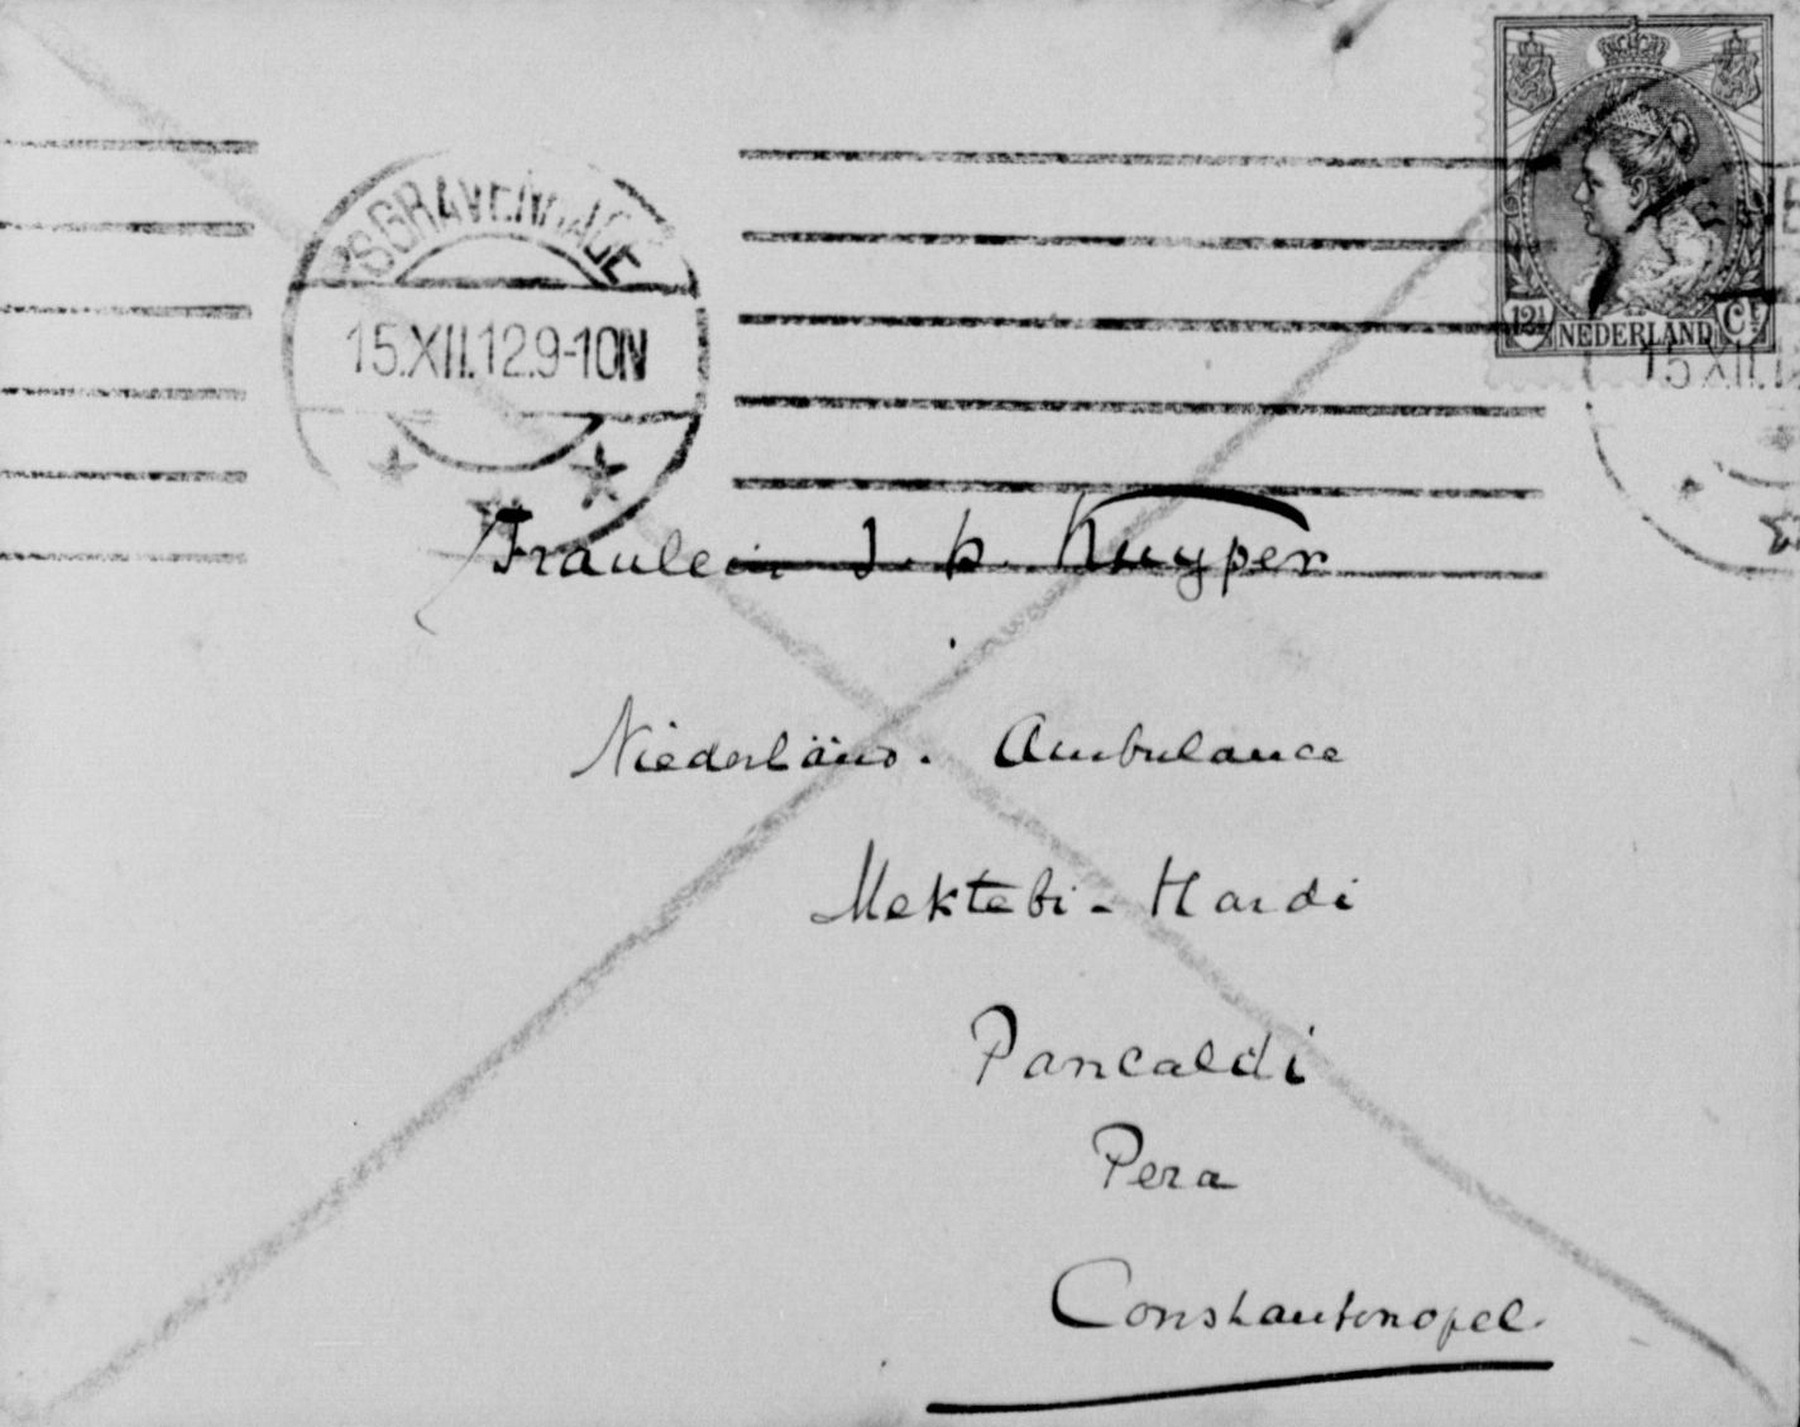 'SGRAVENHAGE
15.XII.12.9-10N
12½ NEDERLAND Ct
15.XII.1
Fräulein J. h. Kuyper
Niederländ. Ambulance
Mektebi-Hardi
Pancaldi
Pera
Constantinopel.